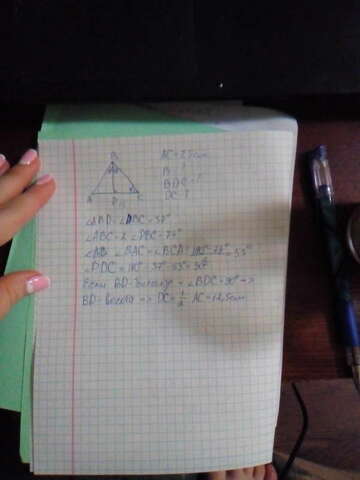 B
A D C
AC = 25 см
B - ?
BDC - ?
DC - ?
∠ABD = ∠DBC = 37°
∠ABC = 2 ∠DBC = 74°
∠BAC = ∠BCA = 180°-74° = 53°
∠BDC = 180° - 37° - 53° = 90°
Если BD - => ∠BDC = 90° =>
BD - высота => DC = 1/2 AC = 12,5 см